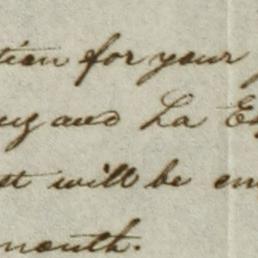 tion for your
and La
st will be en
month.